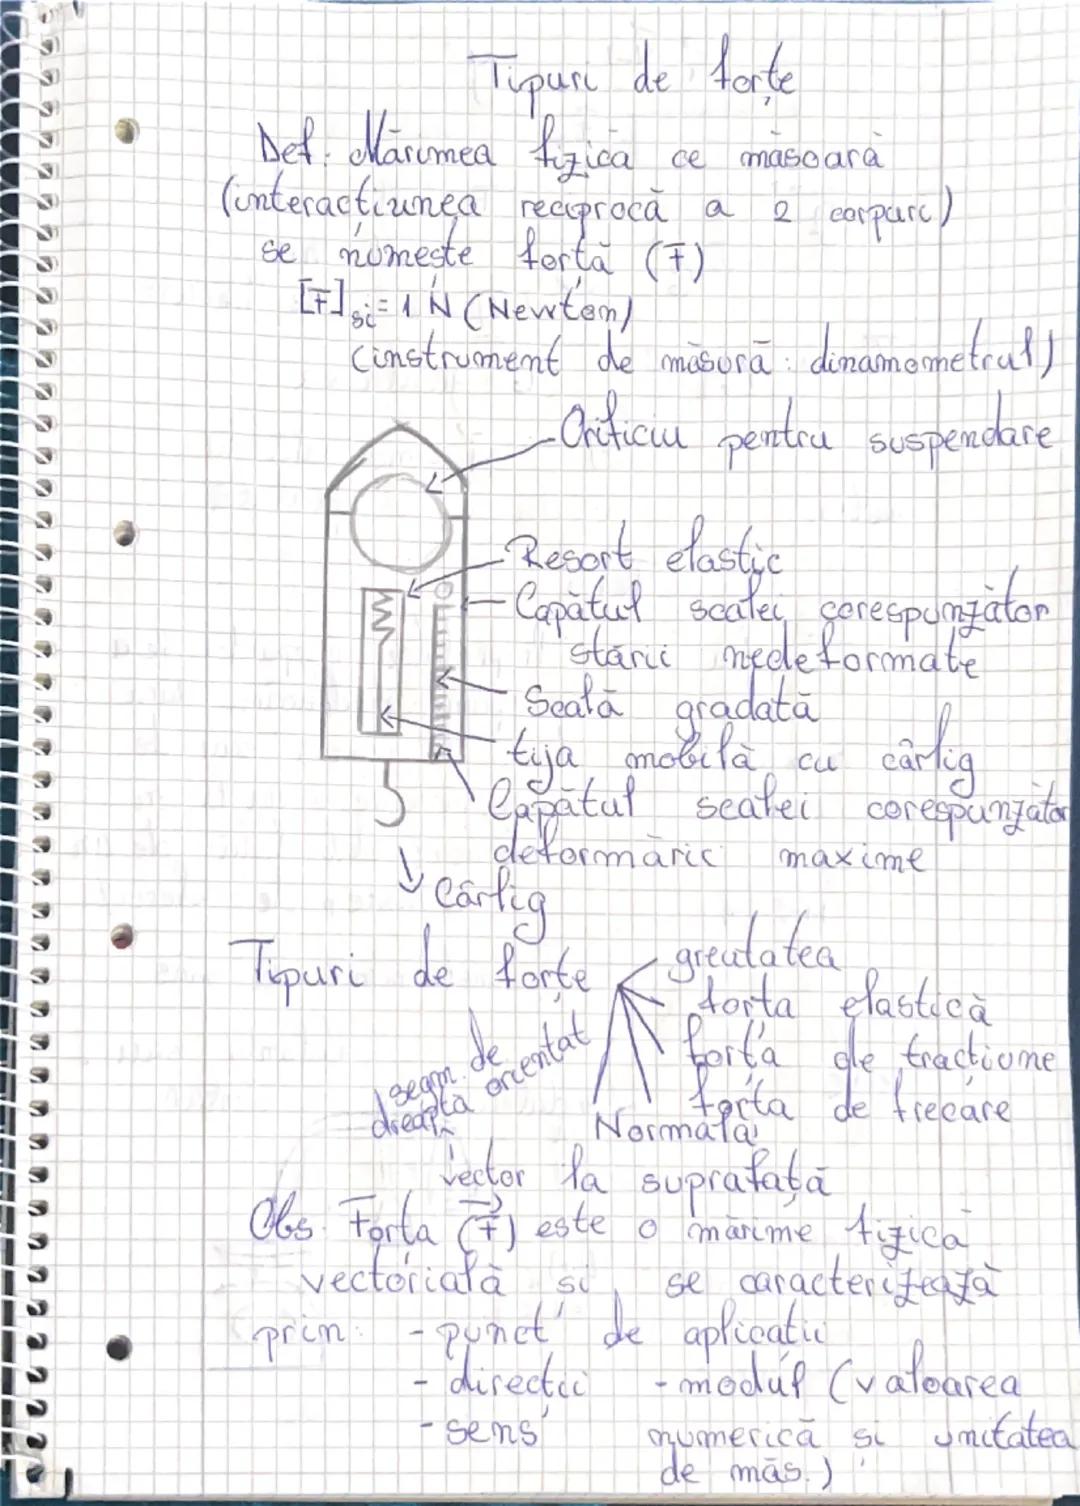 Tipuri de forțe
Def. Mărimea fizică ce măsoară
(interacțiunea reciprocă a 2 corpuri)
se numește forță (F)
[F]si = 1 N (Newton)
(instrument de măsură: dinamometrul)
Orificiu pentru suspendare
Resort elastic
Capătul scalei corespunzător
stării nedeformate
Scală gradată
tija mobilă cu cârlig
Capătul scalei corespunzător
deformării maxime
Cârlig
Tipuri de forțe
greutatea
forța elastică
forța de tracțiune
forța de frecare
Normala
la suprafață
segm. de
dreaptă orientat
vector
Obs. Forța (F) este o mărime fizică
vectorială și se caracterizează
prin: - punct de aplicații
- direcții - modul (valoarea
- sens numerică și unitatea
de măs.)